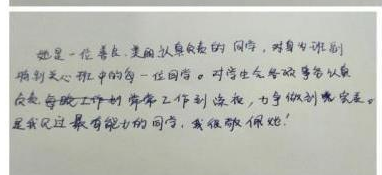 她是一位善良、美丽、认真负责的同学，对身为班副
特别关心班中的每一位同学。对学生会各项事务认真
负责 每晚工作到 常常工作到深夜，力争做到 完美。
是我见过最有能力的同学，我很敬佩她！